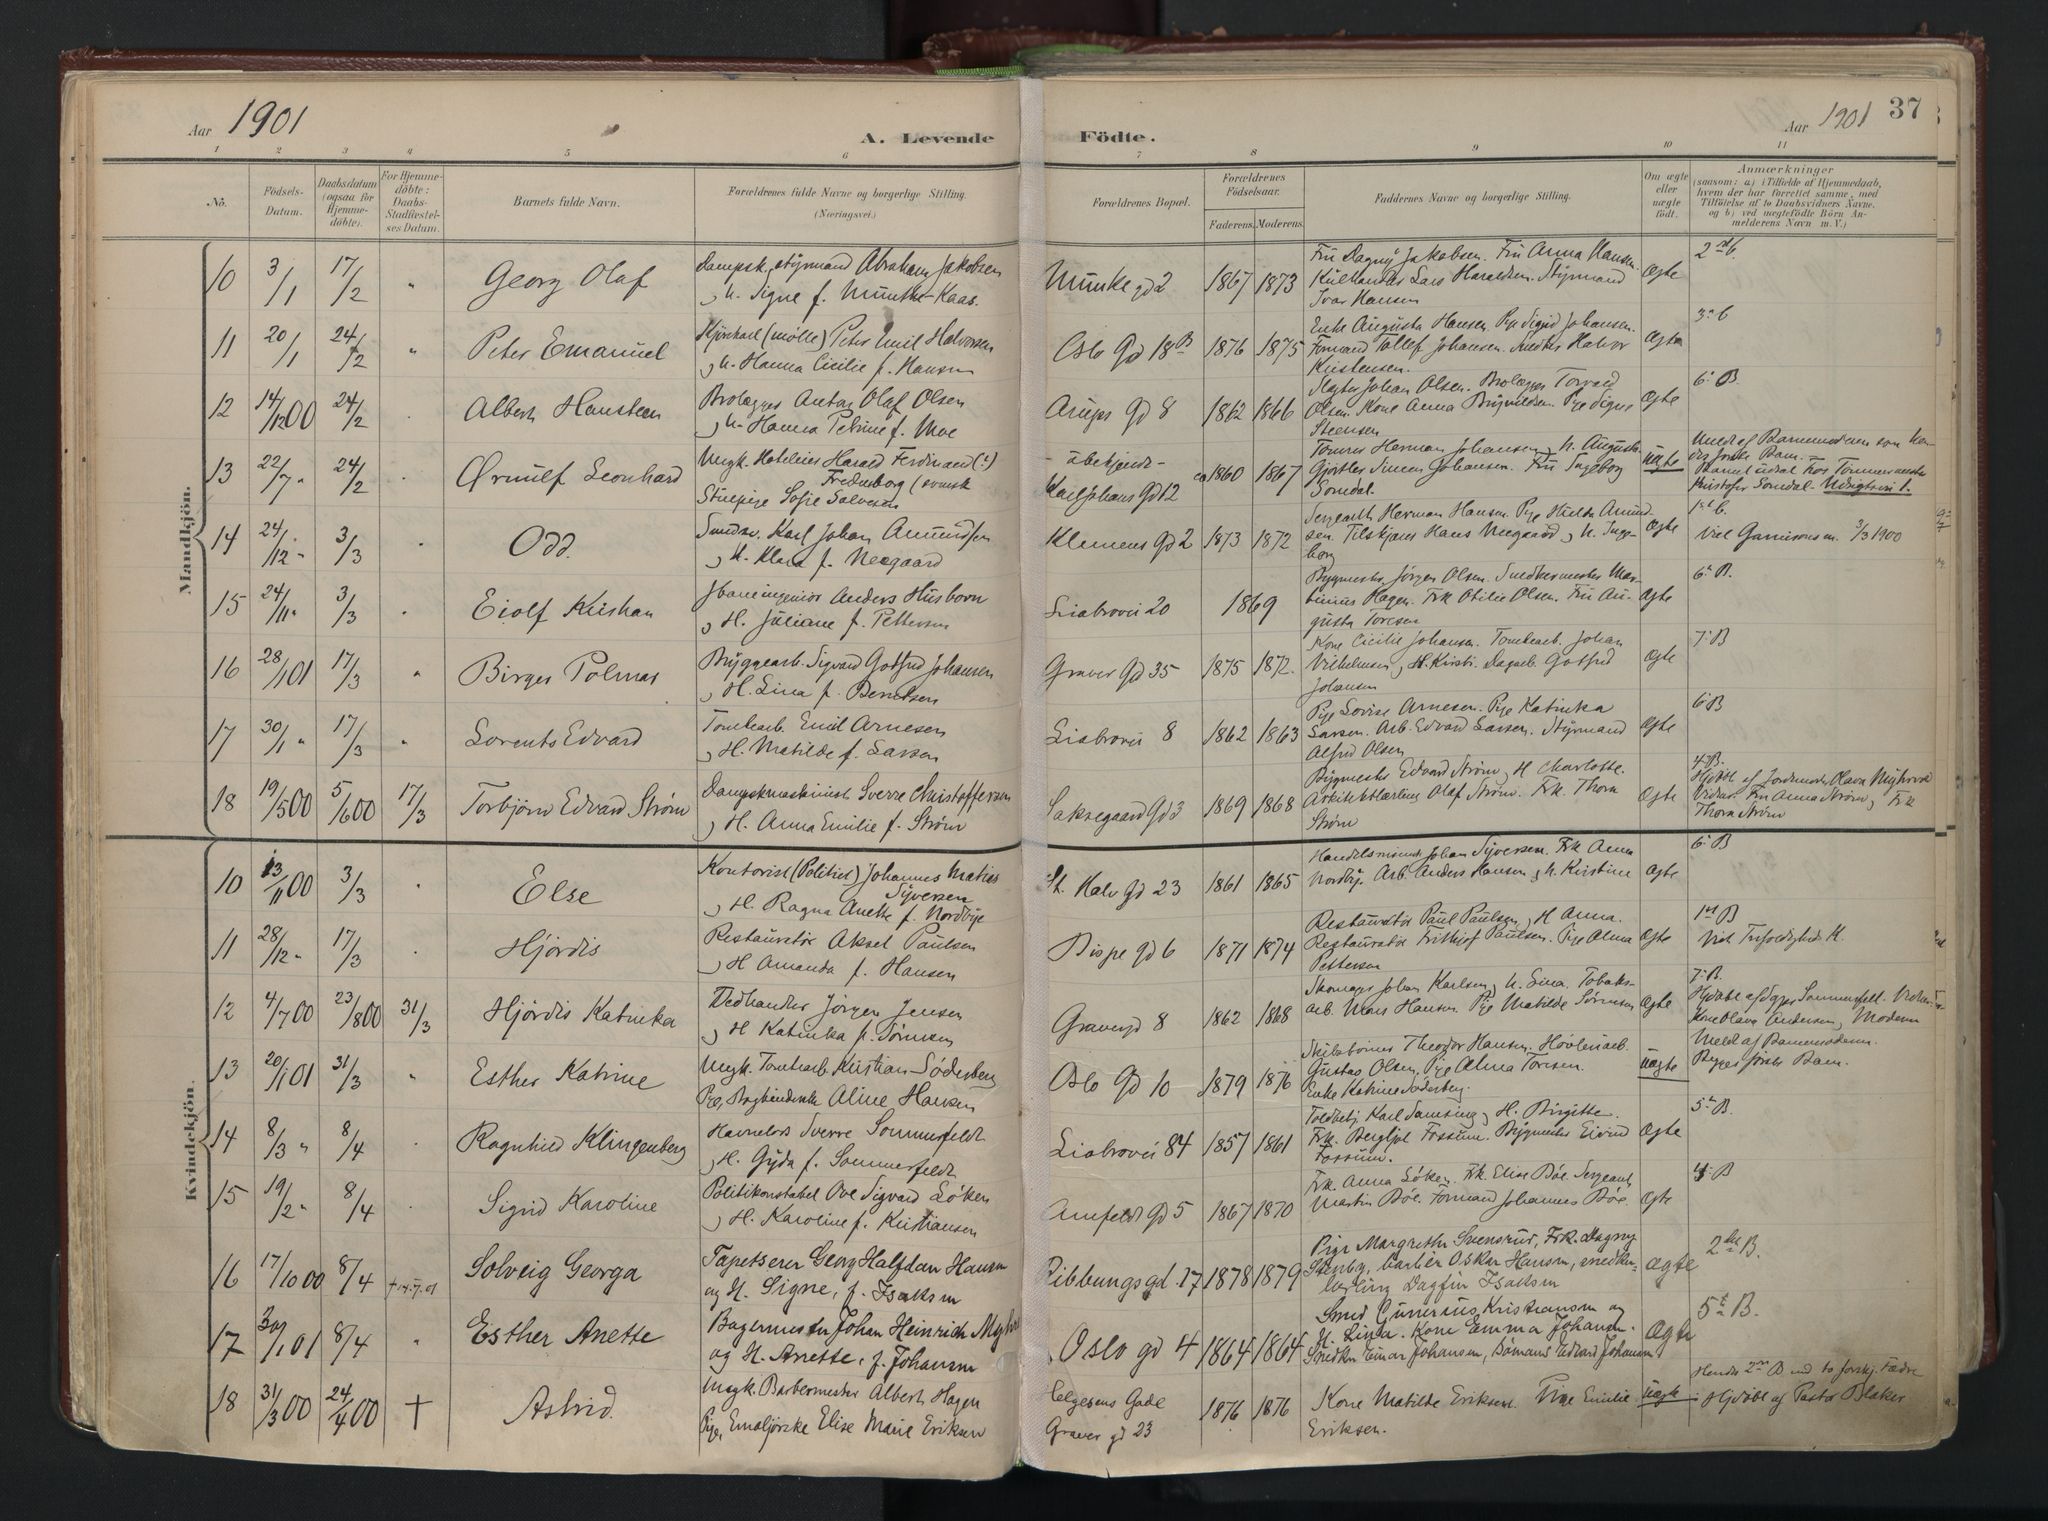 Aar 1901
A. Levende
Födte.
Aar 1901
37
1 2 3 4 5 6 7 8 9 10 11
No.
Födsels-
Datum.
Daabsdatum
(ogsaa for
Hjemme-
döbte).
For Hjemme-
döbte:
Daabs-
Stadfæstel-
ses Datum.
Barnets fulde Navn.
Forældrenes fulde Navne og borgerlige Stilling.
(Næringsvei.)
Forældrenes Bopæl.
Forældrenes
Födselsaar.
Faderens. Moderens.
Faddernes Navne og borgerlige Stilling.
Om ægte
eller
uægte
födt.
Anmærkninger
(saasom: a) i Tilfælde af Hjemmedaab,
hvem der har forrettet samme, med
Tilföielse af to Daabsvidners Navne,
og b) ved uægtefödte Börn An-
melderens Navn m. V.)
Mandkjön.
10 3/1 17/2 " Georg Olaf
Dampsk. styrmand Abraham Jakobsen
H. Signe f. Munthe-Kaas.
Munke gd 2 1867 1873
Fru Dagny Jakobsen. Fru Anna Hansen.
Kulhandler Lars Haraldsen. Styrmand
Ivar Hansen
Ægte
11 20/1 24/2 " Peter Emanuel
Peter Emil Halvorsen
H. Hanna Cicilie f. Hansen
Oslo Gd 18B 1876 1875
Enke Augusta Hansen. Pige Sigrid Johansen.
Formand Tollef Johansen. Halvor
Kristensen.
12 14/12 00 24/2 Albert Hansteen
Brolægger Anton Olaf Olsen
H. Hanna Petrine f. Moe
Arups Gd 8 1862 1866
Johan Olsen. Brolægger Torvald
Olsen. Kone Anna Brynildsen. Pige Signe
Steensen
Ægte
6' B.
13 22/7 " 24/2 Ørnulf Leonhard
Ungk. Hoteleier Harald Ferdinand (?)
Fredenborg (svensk
Stuepige Sofie Salvesen
- ubekjendt -
Karl Johans Gd 12 ca 1860 1867
Tømrer Herman Johansen, H. Augusta.
Gjørtler Simen Johansen. Fru Ingeborg
Somdal.
uægte
Meldt af Barnemoderen som hen-
Kristofer Somdal. Udsigtsvei 1.
14 24/12 " 3/3 Odd.
Karl Johan Amundsen
H. Klara f. Neegaard
Klemens Gd 2 1873 1872
Sergeant Herman Hansen. Pige Hulda Amund-
sen. Tilskjærer Hans Neegaard, H. Inge-
borg
Ægte
Viet Garnisonsm. 3/3 1900
15 24/11 " 3/3 Eiolf Kristian
Anders Husborn
H. Juliane f. Pettersen
Liabrovei 20 1869
Bygmester Jørgen Olsen. Snedkermester Mar-
tinius Hagen. Frk Otilie Olsen. Fru Au-
gusta Toresen
Ægte
6' B.
16 28/1 01 17/3 " Birger Polmar
Bryggearb. Sigvard Gotfred Johansen
H. Lina f. Berntsen
Graver Gd 35 1875 1872.
Kone Cicilie Johansen. Tomtearb. Johan
Vilhelmsen, H. Kirsti. Dagarb. Gotfred
Johansen
Ægte
7' B
17 30/1 " 17/3 " Lorents Edvard
Tomtearb. Emil Arnesen
H. Matilde f. Larsen
Liabrovei 8 1862 1863
Pige Lovise Arnesen. Pige Katinka
Larsen. Arb. Edvard Larsen. Styrmand
Alfred Olsen
Ægte
6' B
18 19/5 00 5/6 00 17/3 Torbjørn Edvard Strøm
Dampskmaskinist Sverre Christoffersen
H. Anna Emilie f. Strøm
Saksegaard Gd 3 1869 1868
Bygmester Edvard Strøm, H Charlotte.
Arkitektlærling Olaf Strøm. Frk. Thora
Strøm
Ægte
4' B.
Hjdøbt af Jordemoder Olava
Vidner: Fru Anna Strøm, Frk
Thora Strøm
Kvindekjön.
10 13/11 00 3/3 Else
Kontorist (Politiet) Johannes Matias
Syversen
H. Ragna Anette f. Nordbye
St. Halv Gd 23 1861 1865
Handelsmand Johan Syversen. Frk Anna
Nordbye. Arb. Anders Hansen, H. Kristine
Ægte
6' B
11 28/12 " 17/3 Hjørdis
Restauratør Aksel Paulsen
H Amanda f. Hansen
Bispe gd 6 1871 1874
Restauratør Paul Paulsen, H Anna.
Restauratør Frithjof Paulsen. Pige Alma
Petterson
Ægte
1st B
Viet Trefoldigheds K.
12 4/7 00 23/8 00 31/3 Hjørdis Katinka
Vedhandler Jørgen Jensen
H Katinka f. Sørensen
Gravergd 8 1862 1868
Skomager Johan Karlsen, H. Lina. Tobaks-
arb. Mars Hansen. Pige Matilde Sørensen
Ægte
7' B.
Hjdøbt af Sommerfelt. Vidner:
Kone Olava Andersen, Moderen
13 20/1 01 31/3 " Esther Katrine
Ungk. Tomtearb Kristian Söderberg
Pige, Bogbinderske Aline Hansen
Oslo Gd 10 1879 1876
Theodor Hansen. Høvleriarb.
Gustav Olsen. Pige Alma Toresen.
Enke Katrine Söderberg.
uægte
Meldt af Barnemoderen.
Beges første Barn.
14 8/3 " 8/4 Ragnhild Klingenberg
Havnelods Sverre Sommerfeldt
H. Gyda f. Sommerfeldt
Liabrovei 84 1857 1861
Toldbetj Karl Samsing, H. Birgitte.
Frk. Bergljot Fossum. Bygmester Eivind
Fossum.
Ægte
5' B.
15 19/2 " 8/4 Sigrid Karoline
Politikonstabel Ove Sigvard Löken
H. Karoline f. Kristiansen
Amfeldt Gd 5 1867 1870
Frk. Anna Löken. Frk. Elise Böe. Sergeant
Martin Böe. Formand Johannes Böe.
Ægte
4' B
16 17/10 00 8/4 Solveig Georga
Tapetserer Georg Halfdan Hansen
og H. Signe, f. Isaksen
Ribbungsgd. 17 1878 1879
Pige Margrethe Svensrud, Frk. Dagny
Stenby, barber Oskar Hansen, snedker-
lærling Dagfin Isaksen
Ægte
2den B.
17 30/1 01 8/4 " Esther Anette
Bagermester Johan Heinrich Myhre
og H. Anette, f. Johansen
Oslo gd 4 1864 1864
Smed Gunerius Kristiansen og
H. Lina. Kone Emma Johansen.
Snedker Einar Johansen, Sømand Edvard Johansen
Ægte
5te B.
18 31/3 00 24/4 00 † Astrid.
Ungk. Barbermester Albert Hagen
Pige, Emaljørske Elise Marie Eriksen
Helgesens Gade
Graver gd 23
1876 1876
Kone Matilde Eriksen. Pige Emilie
Eriksen.
uægte
Hendes 2det B med to forskj. Fædre
Hjdøbt af Pastor Blaker